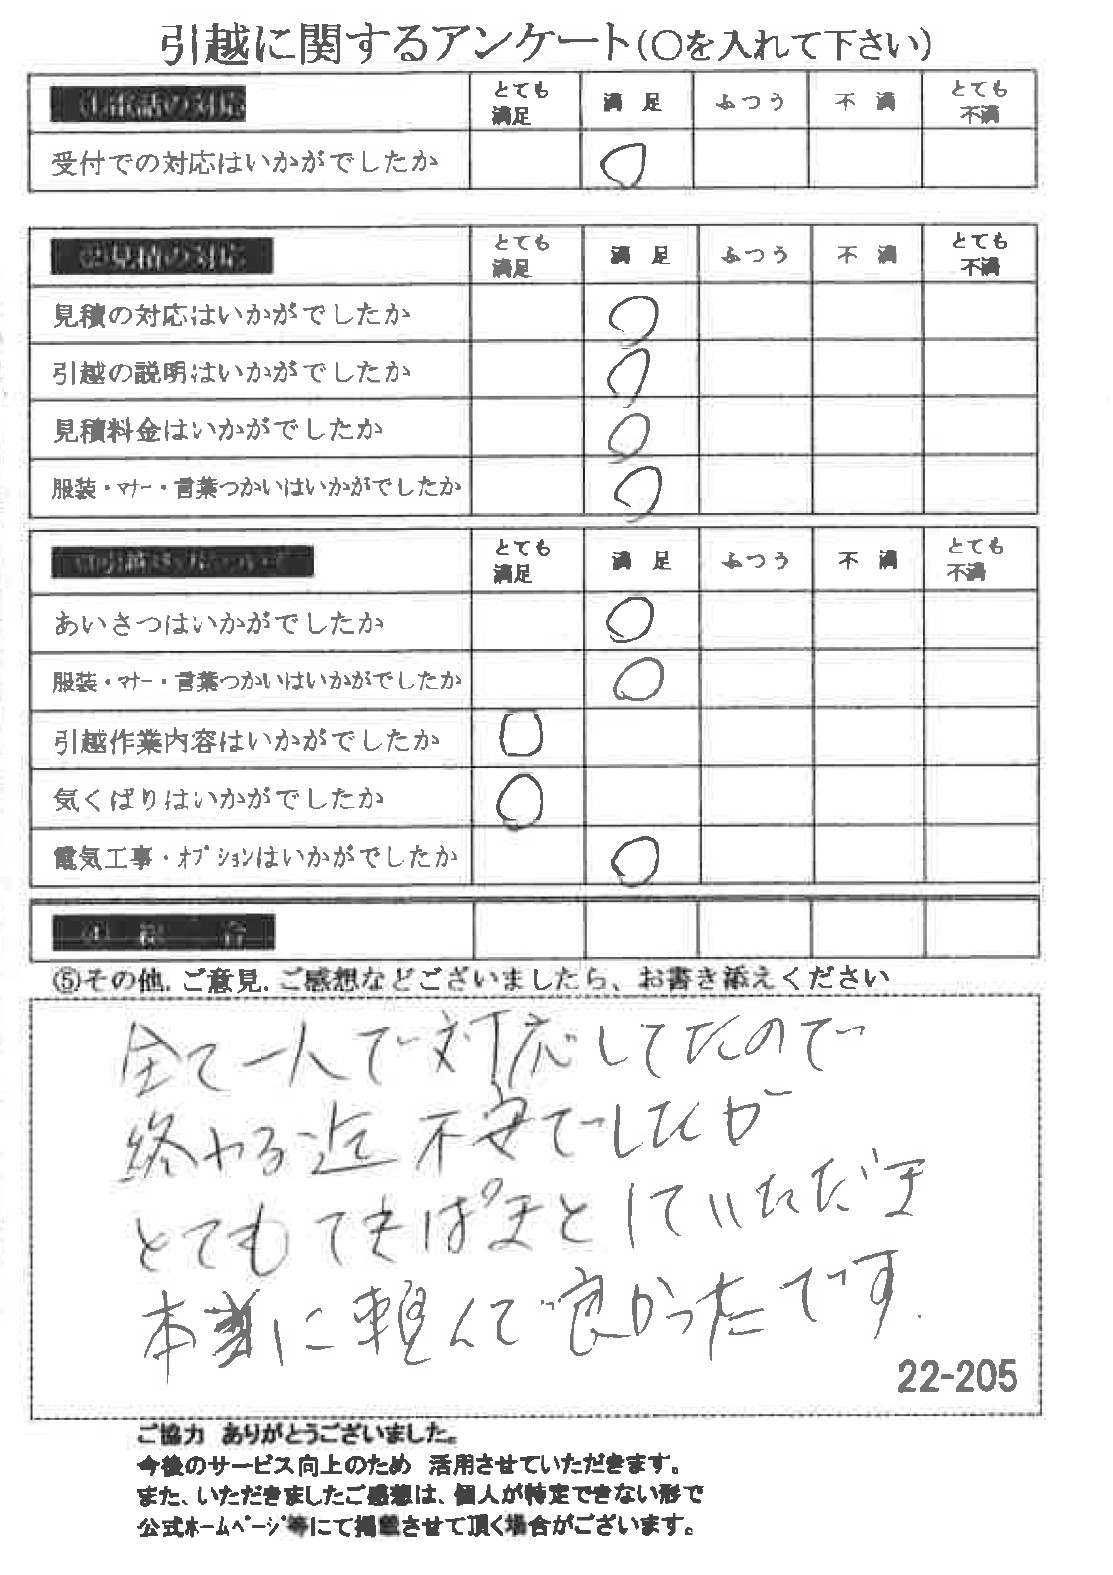 引越に関するアンケート(○を入れて下さい)
①電話の対応 とても満足 満 足 ふつう 不 満 とても不満
受付での対応はいかがでしたか ○
②見積の対応 とても満足 満 足 ふつう 不 満 とても不満
見積の対応はいかがでしたか ○
引越の説明はいかがでしたか ○
見積料金はいかがでしたか ○
服装・マナー・言葉つかいはいかがでしたか ○
とても満足 満 足 ふつう 不 満 とても不満
あいさつはいかがでしたか ○
服装・マナー・言葉つかいはいかがでしたか ○
引越作業内容はいかがでしたか ○
気くばりはいかがでしたか ○
電気工事・オプションはいかがでしたか ○
④ 総 合
⑤その他.ご意見.ご感想などございましたら、お書き添えください
全て一人で対応してたので
終わる迄 不安でしたが
とても てきぱきと していただき
本当に頼んで良かったです.
22-205
ご協力 ありがとうございました。
今後のサービス向上のため 活用させていただきます。
また、いただきましたご感想は、個人が特定できない形で
公式ホームページ等にて掲載させて頂く場合がございます。